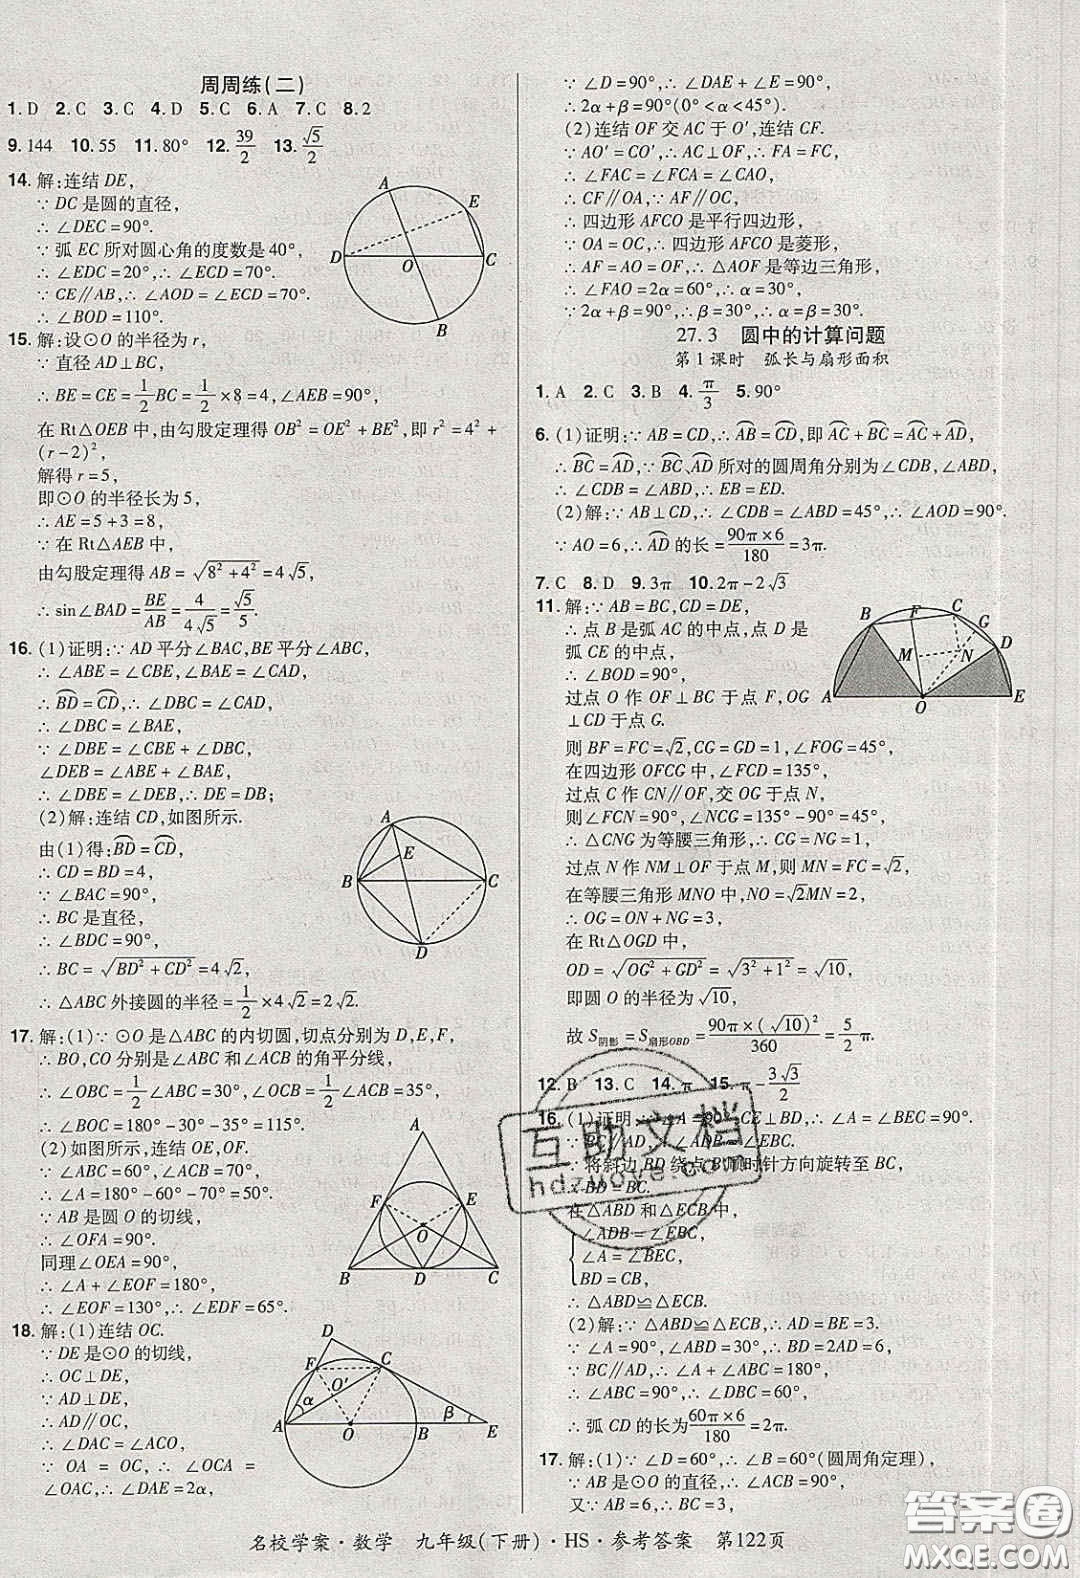 周周练(二)
1. D 2. C 3. C 4. D 5. C 6. A 7. C 8. 2
9. 144 10. 55 11. 80° 12. 39/2 13. √5/2
14. 解:连结 DE,
∵ DC 是圆的直径,
∴ ∠DEC = 90°.
∵ 弧 EC 所对圆心角的度数是 40°,
∴ ∠EDC = 20°, ∴ ∠ECD = 70°.
∵ CE∥AB, ∴ ∠AOD = ∠ECD = 70°.
∴ ∠BOD = 110°.
A
E
D
O
C
B
15. 解:设⊙O 的半径为 r,
∵ 直径 AD⊥BC,
∴ BE = CE = 1/2 BC = 1/2 × 8 = 4, ∠AEB = 90°,
在 Rt△OEB 中,由勾股定理得 OB² = OE² + BE², 即 r² = 4² +
(r − 2)²,
解得 r = 5,
即⊙O 的半径长为 5,
∴ AE = 5 + 3 = 8,
∵ 在 Rt△AEB 中,
由勾股定理得 AB = √(8² + 4²) = 4√5,
∴ sin∠BAD = BE/AB = 4/(4√5) = √5/5.
16. (1)证明:∵ AD 平分∠BAC,BE 平分∠ABC,
∴ ∠ABE = ∠CBE, ∠BAE = ∠CAD,
∴ ⌒BD = ⌒CD, ∴ ∠DBC = ∠CAD,
∴ ∠DBC = ∠BAE,
∵ ∠DBE = ∠CBE + ∠DBC,
∠DEB = ∠ABE + ∠BAE,
∴ ∠DBE = ∠DEB, ∴ DE = DB;
(2)解:连结 CD,如图所示.
由(1)得: ⌒BD = ⌒CD,
∴ CD = BD = 4,
∵ ∠BAC = 90°,
∴ BC 是直径,
∴ ∠BDC = 90°,
∴ BC = √(BD² + CD²) = 4√2,
∴ △ABC 外接圆的半径 = 1/2 × 4√2 = 2√2.
A
E
B
C
D
17. 解:(1)∵ ⊙O 是△ABC 的内切圆,切点分别为 D,E,F,
∴ BO,CO 分别是∠ABC 和∠ACB 的角平分线,
∴ ∠OBC = 1/2 ∠ABC = 30°, ∠OCB = 1/2 ∠ACB = 35°,
∴ ∠BOC = 180° − 30° − 35° = 115°.
(2)如图所示,连结 OE,OF.
∵ ∠ABC = 60°, ∠ACB = 70°,
∴ ∠A = 180° − 60° − 70° = 50°.
∵ AB 是圆 O 的切线,
∴ ∠OFA = 90°.
同理∠OEA = 90°,
∴ ∠A + ∠EOF = 180°,
∴ ∠EOF = 130°, ∴ ∠EDF = 65°.
A
F
E
O
B
D
C
18. 解:(1)连结 OC.
∵ DE 是⊙O 的切线,
∴ OC⊥DE,
∵ AD⊥DE,
∴ AD∥OC,
∴ ∠DAC = ∠ACO,
∵ OA = OC, ∴ ∠OCA =
∠OAC, ∴ ∠DAE = 2α,
D
F
C
O′
α
β
A
O
B
E
∵ ∠D = 90°, ∴ ∠DAE + ∠E = 90°,
∴ 2α + β = 90°(0° < α < 45°).
(2)连结 OF 交 AC 于 O′,连结 CF.
∵ AO′ = CO′, ∴ AC⊥OF, ∴ FA = FC,
∴ ∠FAC = ∠FCA = ∠CAO,
∴ CF∥OA, ∵ AF∥OC,
∴ 四边形 AFCO 是平行四边形,
∵ OA = OC, ∴ 四边形 AFCO 是菱形,
∴ AF = AO = OF, ∴ △AOF 是等边三角形,
∴ ∠FAO = 2α = 60°, ∴ α = 30°,
∵ 2α + β = 90°, ∴ β = 30°, ∴ α = β = 30°.
27. 3 圆中的计算问题
第 1 课时 弧长与扇形面积
1. A 2. C 3. B 4. π/3 5. 90°
6. (1)证明:∵ AB = CD, ∴ ⌒AB = ⌒CD, 即 ⌒AC + ⌒BC = ⌒AC + ⌒AD,
∴ ⌒BC = ⌒AD, ∵ ⌒BC、⌒AD 所对的圆周角分别为∠CDB, ∠ABD,
∴ ∠CDB = ∠ABD, ∴ EB = ED.
(2)解:∵ AB⊥CD, ∴ ∠CDB = ∠ABD = 45°, ∴ ∠AOD = 90°.
∵ AO = 6, ∴ ⌒AD 的长 = 90π × 6/180 = 3π.
7. C 8. D 9. 3π 10. 2π − 2√3
11. 解:∵ AB = BC, CD = DE,
∴ 点 B 是弧 AC 的中点,点 D 是
弧 CE 的中点,
∴ ∠BOD = 90°,
过点 O 作 OF⊥BC 于点 F, OG
⊥CD 于点 G.
则 BF = FC = √2, CG = GD = 1, ∠FOG = 45°,
在四边形 OFCG 中, ∠FCD = 135°,
过点 C 作 CN∥OF,交 OG 于点 N,
则∠FCN = 90°, ∠NCG = 135° − 90° = 45°,
∴ △CNG 为等腰三角形, ∴ CG = NG = 1,
过点 N 作 NM⊥OF 于点 M,则 MN = FC = √2,
在等腰三角形 MNO 中, NO = √2MN = 2,
∴ OG = ON + NG = 3,
在 Rt△OGD 中,
OD = √(OG² + GD²) = √(3² + 1²) = √10,
即圆 O 的半径为 √10,
故 S阴影 = S扇形OBD = 90π × (√10)²/360 = 5/2 π.
B
F
C
G
D
M
N
A
O
E
12. B 13. C 14. π 15. π − 3√3/2
16. (1)证明:∵ ∠A = 90°, CE⊥BD, ∴ ∠A = ∠BEC = 90°.
∵ BC∥AD, ∴ ∠ADB = ∠EBC.
∵ 将斜边 BD 绕点 B 顺时针方向旋转至 BC,
∴ BD = BC.
在△ABD 和△ECB 中,
∠ADB = ∠EBC,
∠A = ∠BEC = 90°,
BD = CB,
∴ △ABD≌△ECB.
(2)解:∵ △ABD≌△ECB, ∴ AD = BE = 3.
∵ ∠A = 90°, ∠ABD = 30°, ∴ BD = 2AD = 6,
∵ BC∥AD, ∴ ∠A + ∠ABC = 180°,
∴ ∠ABC = 90°, ∴ ∠DBC = 60°,
∴ 弧 CD 的长为 60π × 6/180 = 2π.
17. 解:(1)∵ ∠E = 60°, ∴ ∠B = 60°(圆周角定理),
∵ AB 是⊙O 的直径, ∴ ∠ACB = 90°,
又∵ AB = 6, ∴ BC = 3,
互助文档
hdzuowe.com
名校学案 · 数学 九年级(下册) · HS · 参考答案 第122页
答案圈
MXQE.COM